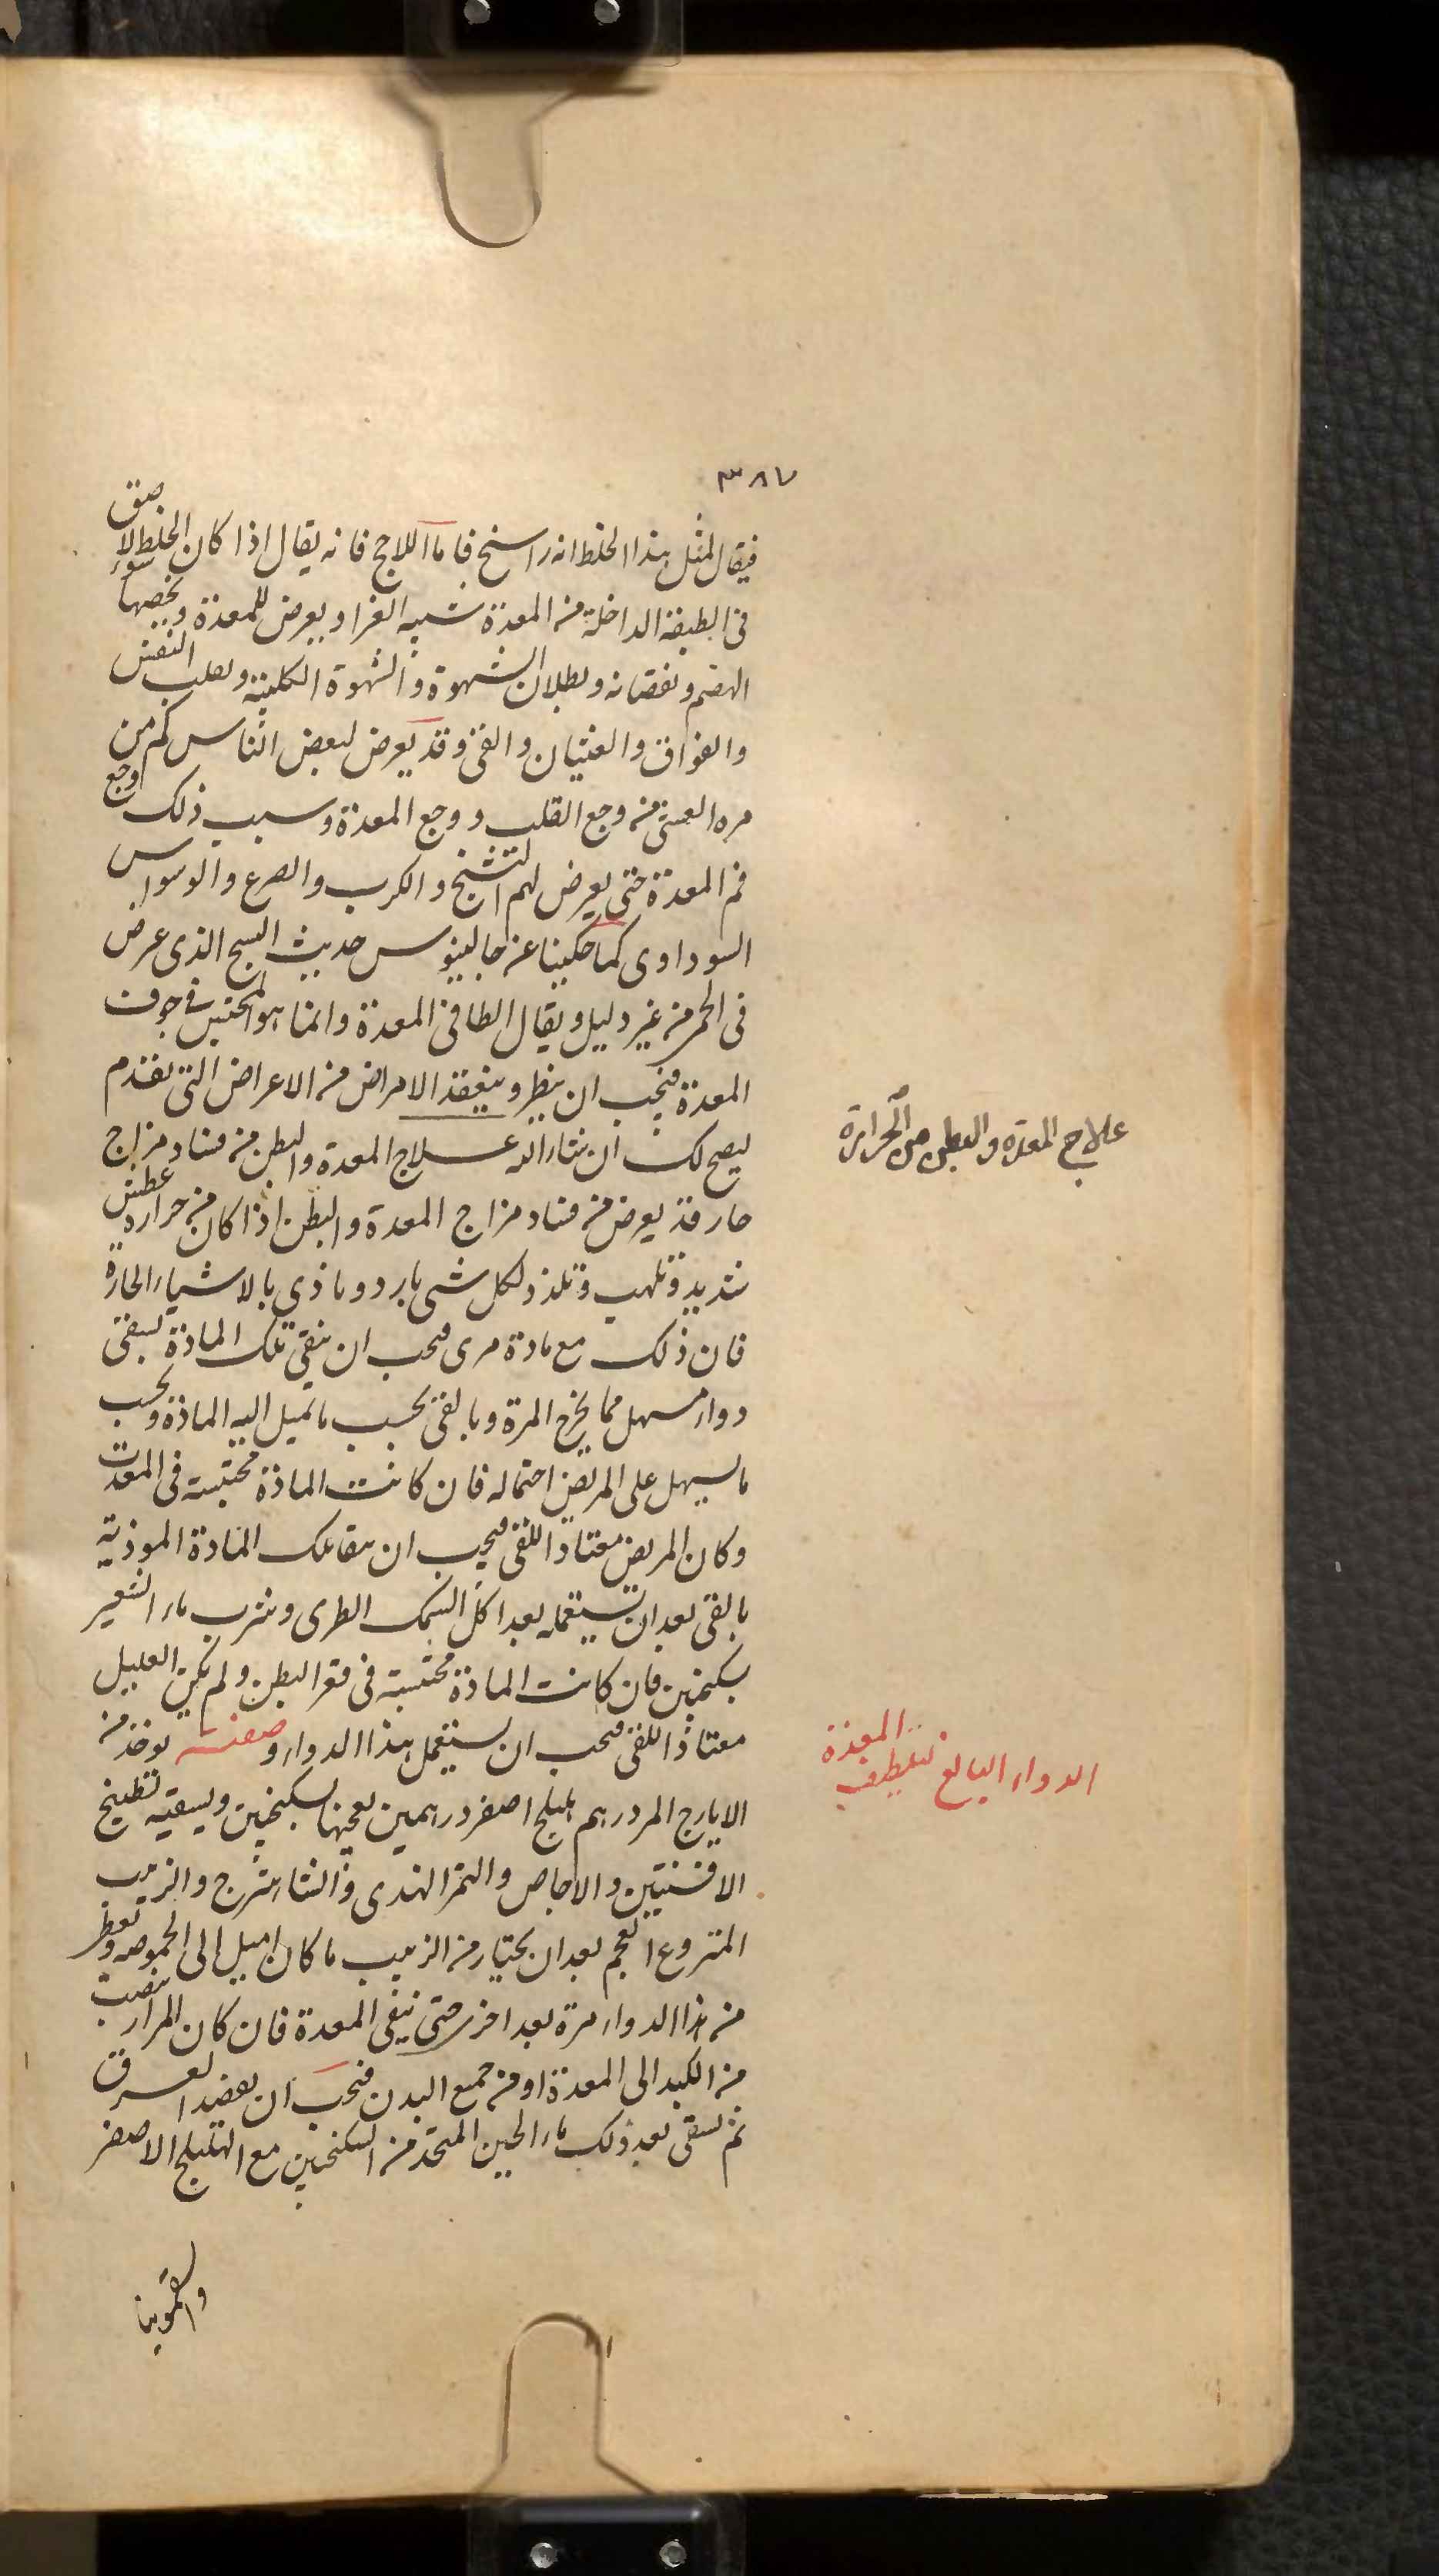 ٣٨٧
فيقال لمثل هذا الخلط انه راسخ فاما اللاحج فانه يقال اذا كان الخلط لاصق
فى الطبقة الداخلة من المعدة شبيه الغرا ويعرض للمعدة ويخصها سوء
الهضم ونقصانه وبطلان الشهوة والشهوة الكلبية وتقلب النفس
والفواق والغثيان والقى وقد يعرض لبعض الناس كم من
مره الغشى من وجع القلب ووجع المعدة وسبب ذلك وجع
فم المعدة حتى يعرض لهم التشنج والكرب والصرع والوسواس
السوداوى كما حكينا عن جالينوس حديث الذى عرض
فى من غير دليل ويقال الطافى المعدة وانما هو المحتبس فى جوف
المعدة فيجب ان ينظر ويتفقد الامراض من الاعراض التى تقدم
ليصح لك ان شاء الله علاج المعدة والبطن من فساد مزاج
حار قد يعرض من فساد مزاج المعدة والبطن اذا كان من حرارة عطش
شديد وتلهب وتلذذ لكل شى بارد وتاذى بالاشياء الحارة
فان ذلك مع مادة مرى فيجب ان ينقى تلك المادة بسقى
دواء مسهل مما يخرج المرة وبالقى بحسب ما تميل اليه المادة وبحسب
ما يسهل على المريض احتماله فان كانت المادة محتبسة فى المعدة
وكان المريض معتادا للقى فيجب ان تلك المادة الموذية
بالقى بعد ان تستعمله بعد اكل السمك الطرى وشرب ماء الشعير
بسكنجبين فان كانت المادة محتبسة فى قعر البطن ولم يكن العليل
معتادا للقى فيجب ان يستعمل هذا الدواء وصفته يوخذ من
الايارج المر درهم هليلج اصفر درهمين يعجنها بسكنجبين ويسقيه بطبيخ
الافسنتين والاجاص والتمر الهندى والشاهترج والزبيب
المنزوع العجم بعد ان يختار من الزبيب ما كان اميل الى الحموضه وتعطى
من هذا الدواء مرة بعد اخرى حتى تنقى المعدة فان كان المرار ينصب
من الكبد الى المعدة او من جميع البدن فيجب ان يفصد العرق
ثم يسقى بعد ذلك ماء الجبن المتخذ من السكنجبين مع الهليلج الاصفر
والسقمونيا
علاج المعدة والبطن من الحرارة
الدواء البالغ لتلطيف المعدة